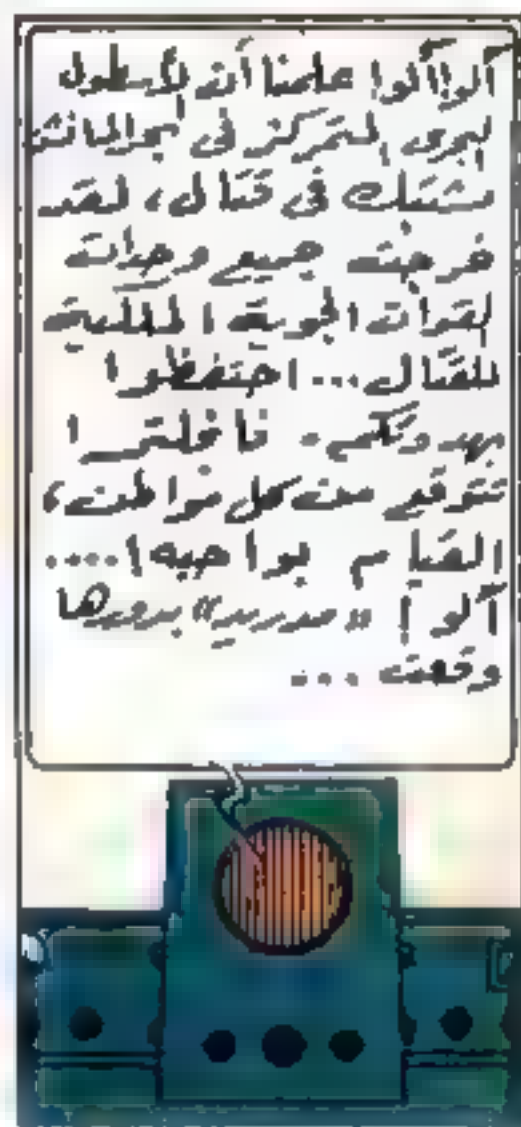 آلو! آلو! علمنا أن الأسطول
البحري المتمركز في بحر المانش
مشتبك في قتال، لقد
خرجت جميع وحدات
القوات الجوية الملكية
للقتال... احتفظوا
بهدوئكم. فانجلترا
تتوقع من كل مواطن،
القيام بواجبه!....
آلو! «مدريد» بدورها
وقعت...